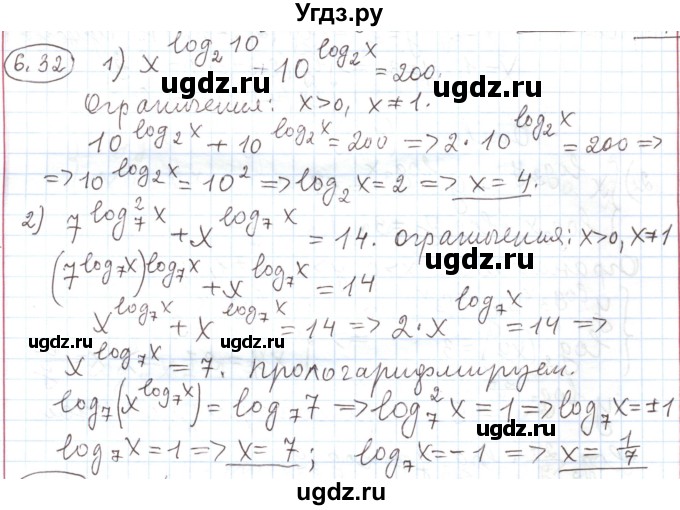 Угдз.ру
6.32 1) x^log₂10 + 10^log₂x = 200.
Ограничения: x>0, x≠1.
10^log₂x + 10^log₂x = 200 => 2·10^log₂x = 200 =>
=> 10^log₂x = 10² => log₂x = 2 => x = 4.
2) 7^log₇²x + x^log₇x = 14. ограничения: x>0, x≠1
(7^log₇x)^log₇x + x^log₇x = 14
x^log₇x + x^log₇x = 14 => 2·x^log₇x = 14 =>
x^log₇x = 7. Прологарифмируем.
log₇(x^log₇x) = log₇7 => log₇²x = 1 => log₇x = ±1
log₇x = 1 => x = 7; log₇x = -1 => x = 1/7
ugdz.ru
ugdz.ru
ugdz.ru
ugdz.ru
ugdz.ru
ugdz.ru
ugdz.ru
ugdz.ru
ugdz.ru
ugdz.ru
ugdz.ru